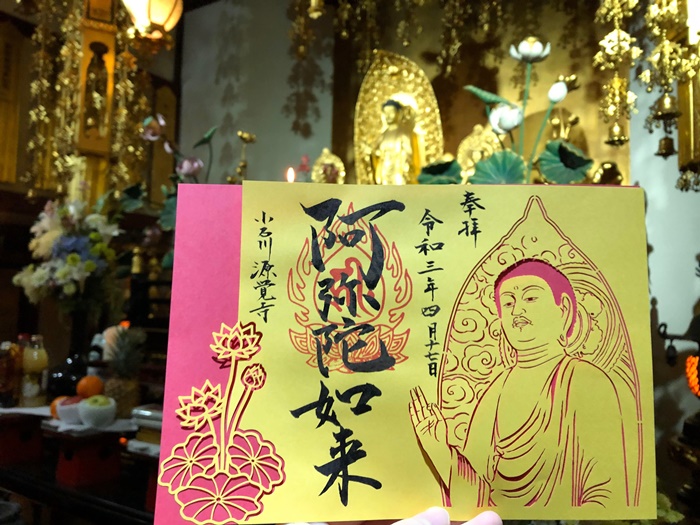 奉拝
令和三年四月十七日
阿弥陀如来
小石川 源覚寺